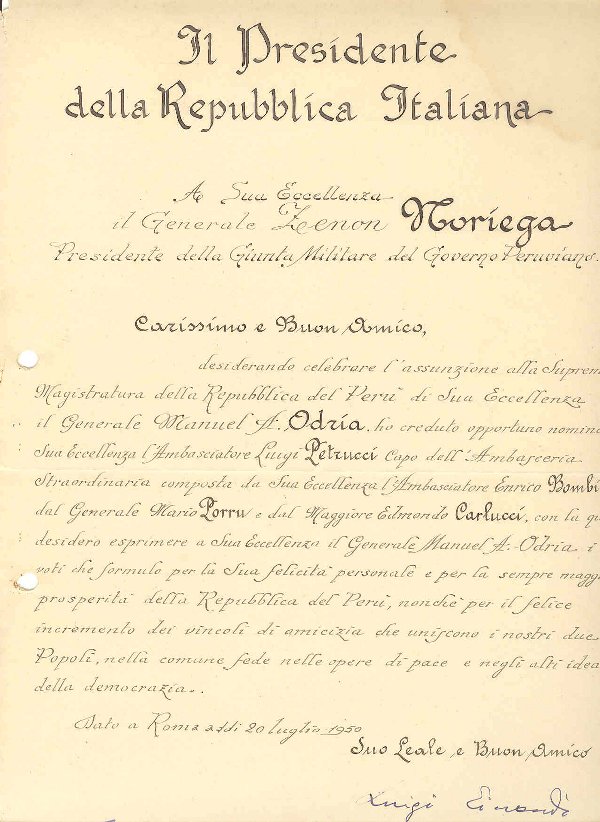 Il Presidente
della Repubblica Italiana
A Sua Eccellenza
il Generale Zenon Noriega
Presidente della Giunta Militare del Governo Peruviano.
Carissimo e Buon Amico,
desiderando celebrare l'assunzione alla Suprem
Magistratura della Repubblica del Perù di Sua Eccellenza
il Generale Manuel A. Odria, ho creduto opportuno nomina
Sua Eccellenza l'Ambasciatore Luigi Petrucci Capo dell'Ambasceria
Straordinaria composta da Sua Eccellenza l'Ambasciatore Enrico Bombi
dal Generale Mario Porru e dal Maggiore Edmondo Carlucci, con la qu
desidero esprimere a Sua Eccellenza il Generale Manuel A. Odria i
voti che formulo per la Sua felicità personale e per la sempre maggi
prosperità della Repubblica del Perù, nonchè per il felice
incremento dei vincoli di amicizia che uniscono i nostri due
Popoli, nella comune fede nelle opere di pace e negli alti idea
della democrazia..
Dato a Roma addì 20 luglio 1950
Suo Leale e Buon Amico
Luigi Einaudi